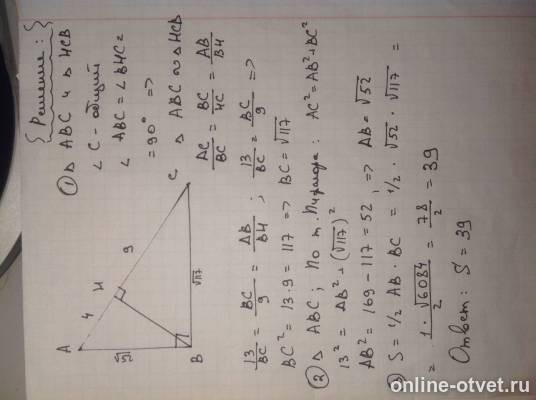 Решение:
① Δ ABC и Δ HCB
∠ C - общий
∠ ABC = ∠ BHC =
= 90° =>
Δ ABC ∾ Δ HCB
AC/BC = BC/HC = AB/BH
13/BC = BC/9 = AB/BH ; 13/BC = BC/9 =>
BC² = 13·9 = 117 => BC = √117
② Δ ABC; По т. Пифагора: AC² = AB² + BC²
13² = AB² + (√117)²
AB² = 169 - 117 = 52, => AB = √52
③ S = 1/2 AB · BC = 1/2 · √52 · √117 =
= 1·√6084/2 = 78/2 = 39
Ответ: S = 39
A
4
H
9
C
√52
B
√117
online-otvet.ru